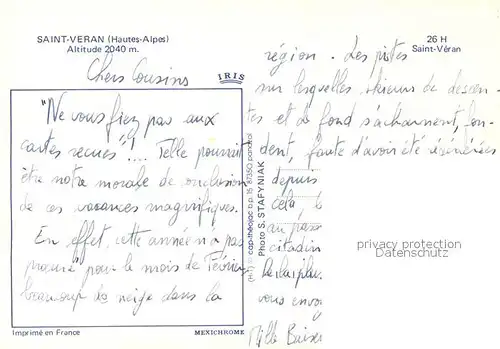 SAINT-VERAN (Hautes-Alpes)
Altitude 2040 m.
26 H
Saint-Véran
IRIS
Chers Cousins
"Ne vous fiez pas aux
cartes reçues"!... Telle pourrait
être notre morale de conclusion
de ces vacances magnifiques.
En effet, cette année n'a pas
procuré pour le mois de Février
beaucoup de neige dans la
région. Les pistes
sur lesquelles skieurs de descen-
tes et de fond s'acharnent, fon-
dent, faute d'avoir été
depuis
celà
au
citadin
vous envoy
Mille Baiser
cap-théojac b.p. 15 87350 panazol
Photo S. STAFYNIAK
privacy protection
Datenschutz
Imprimé en France
MEXICHROME